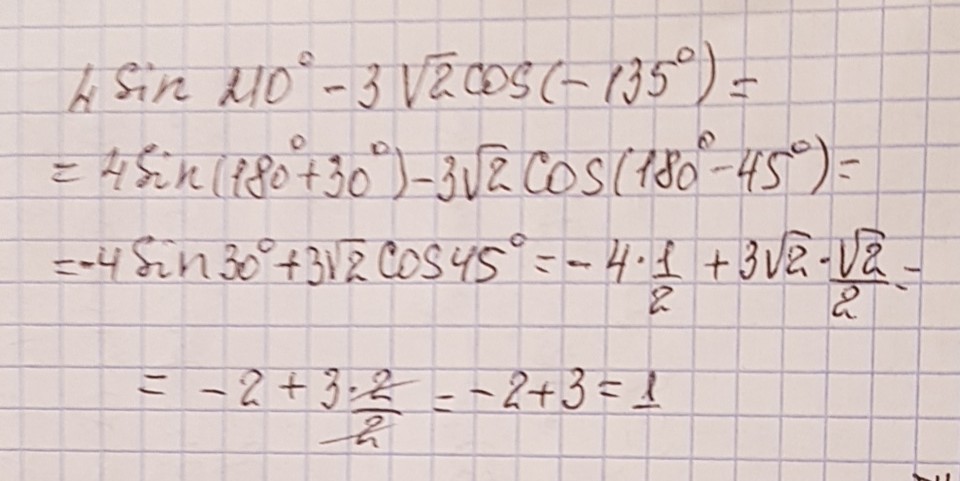 4 sin 210° - 3√2 cos(-135°) =
= 4 sin(180° + 30°) - 3√2 cos(180° - 45°) =
= -4 sin 30° + 3√2 cos 45° = -4 · 1/2 + 3√2 · √2/2 =
= -2 + 3 · 2/2 = -2 + 3 = 1